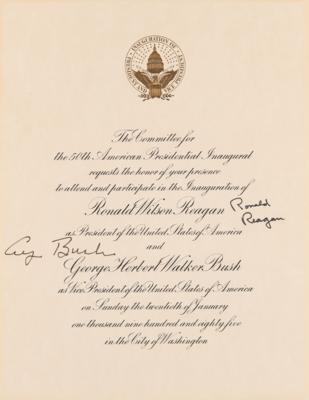 INAUGURATION OF
The Committee for
the 50th American Presidential Inaugural
requests the honor of your presence
to attend and participate in the Inauguration of
Ronald Wilson Reagan
Ronald
Reagan
as President of the United States of America
and
Bush
George Herbert Walker Bush
as Vice President of the United States of America
on Sunday the twentieth of January
one thousand nine hundred and eighty five
in the City of Washington